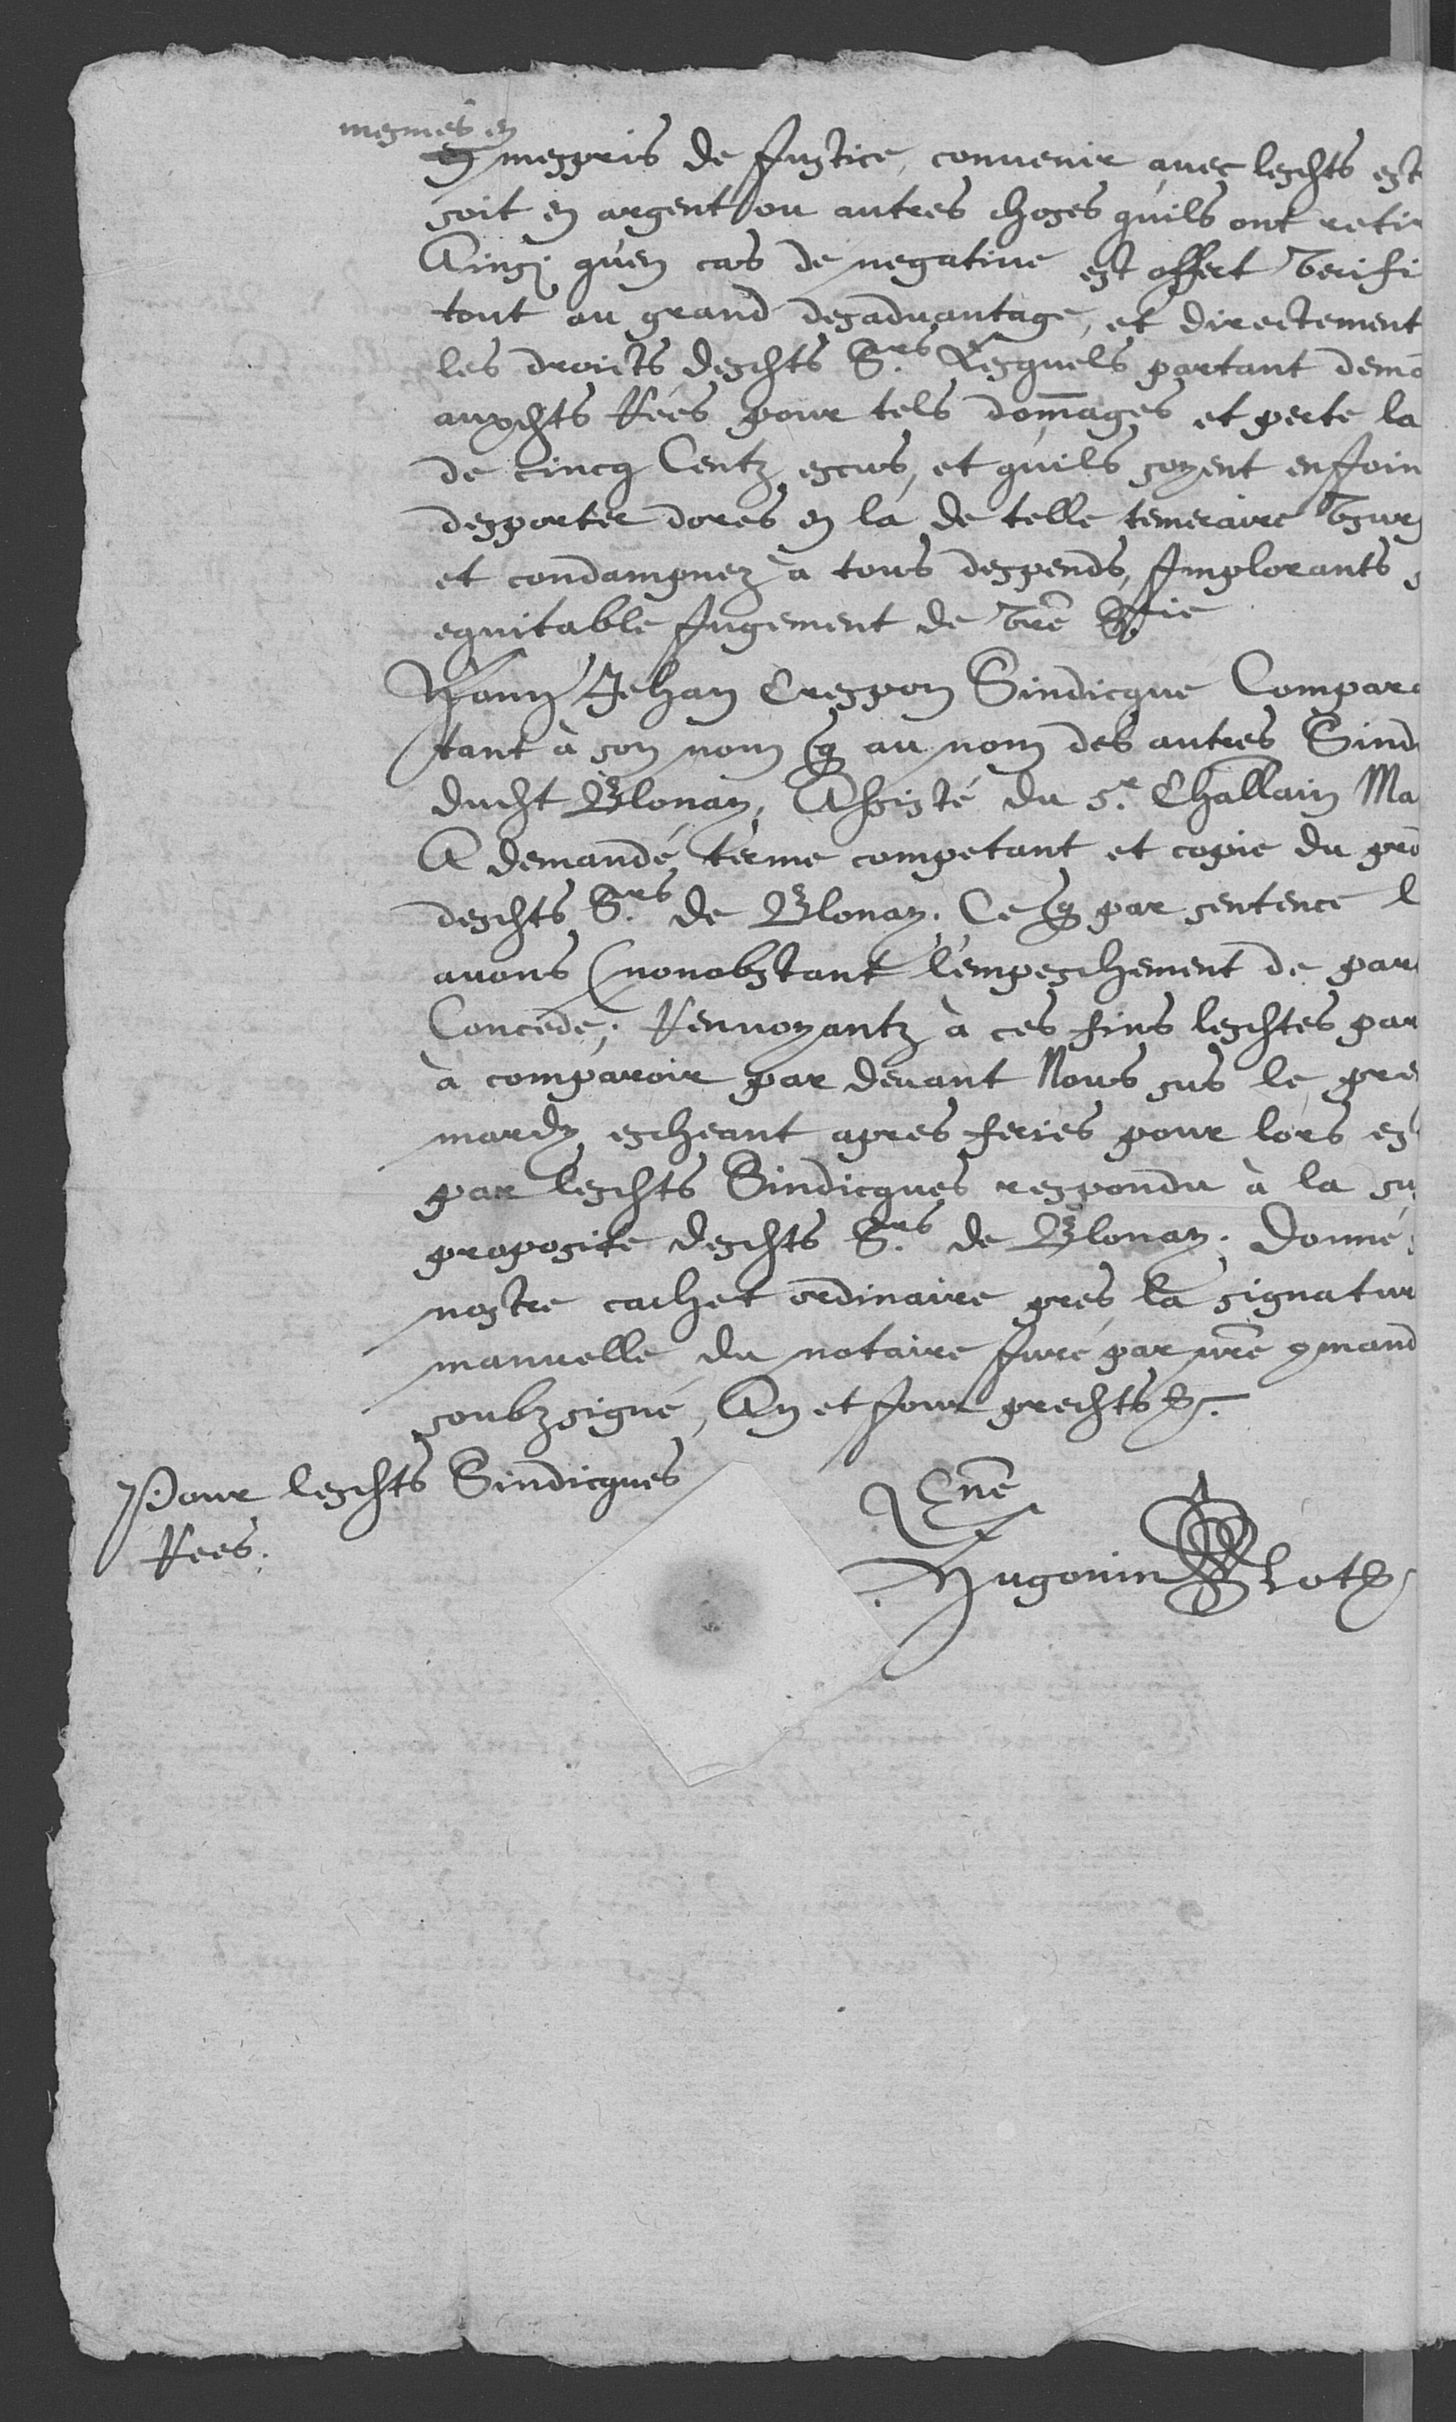 mesmes en
mespris de Justice, convenir avec lesdts est
soit en argent ou autres choses quils ont reti
Ainsi quen cas de negative est offert Verifi
tout au grand desadvantage, et directement
les droicts desdts Srs Lesquels partant dema
auxdts Rées pour tels dommages et perte la
de cincq Centz escus, et quils soyent enjoin
desporter dores en la de telle temeraire Vsur
et condampnez à tous despends, Implorants
equitable Jugement de Vre Srie
Jehan Crespon Sindicque Compara
tant à son nom q au nom des autres Sind
dudt Blonay, Assisté du Sr Challain Ma
A demandé terme competant et copie du pro
desdts Srs de Blonay. Ce q par sentence l
avons (nonobstant lempeschement de par
Concede; Renvoyantz à ces fins lesdtes par
à comparoir par devant Nous sus le pre
mardy escheant apres feries pour lors es
par lesdts Sindicques respondu à la su
proposite desdts Srs de Blonay. Donné
nostre cachet ordinaire pres la signatur
manuelle du notaire Juré par nre 9mand
soubzsigné, An et Jour predts &.
Pour lesdts Sindicques
Rees.
Hugonin